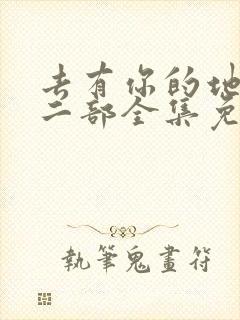 去有你的地
二部全集免
执筆鬼畫符